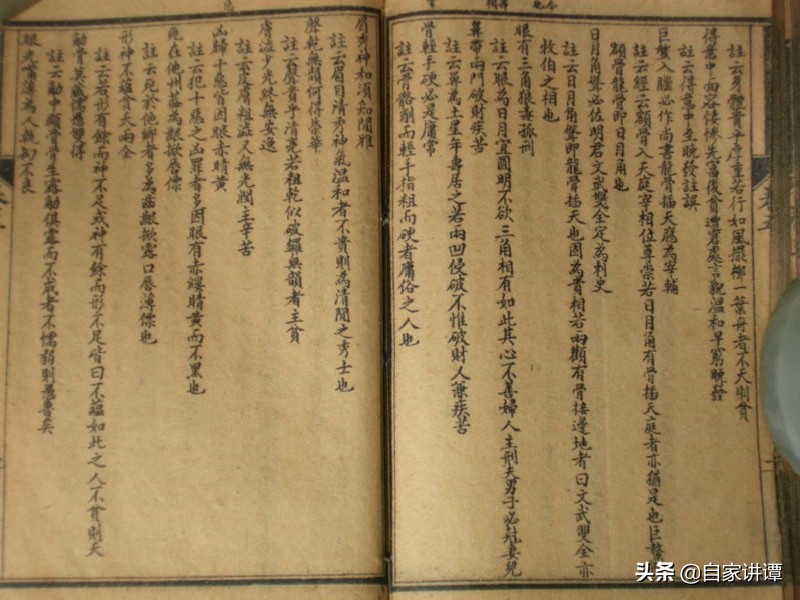 註云身體貴乎厚重若行如風擺柳一葉舟者不夭則貧
得業中面容悽慘先富後貧遭窘處言觀溫和早窮晚發
註云得業中主晚發註誤
巨鰲入腦必作尚書龍骨插天應為宰輔
註云經云顴骨入天庭宰相位尊崇若日月角有骨插天庭者亦猶是也巨鰲
額骨龍骨即日月角也
日月角聳必佐明君文武雙全定為刺史
註云日月角聳即龍骨插天也固為貴相若兩顴有骨接邊地者曰文武雙全亦
牧伯之相也
眼有三角狼毒孤刑
註云眼為日月宜圓明不欲三角相有如此其心不善婦人主刑夫男子必剋妻兒
鼻帶兩凹破財疾苦
註云鼻為土星年壽居之若兩凹侵破不惟破財人兼疾苦
骨輕手硬必是庸常
註云骨骼削而輕手指粗而硬者庸俗之人也
眉秀神和須知閒雅
註云眉目清秀神氣溫和者不貴則為清閒之秀士也
聲乾無韻何得榮華
註云聲貴乎清亮若粗乾似破鑼無韻者主貧
膚澁少光終無安逸
註云皮膚粗澁又無光潤主辛苦
凶歸十惡皆因眼赤睛黃
註云犯十惡之凶罪者多因眼有赤縷睛黃而不黑也
死在他州盖為齦掀唇傺
註云死於他鄉者多為齒齦掀露口唇薄傺也
形神不蘊貧夭兩全
註云若形有餘而神不足或神有餘而形不足皆曰不蘊如此之人不貧則夭
觔骨莫藏懦愚雙得
註云觔中顯骨骨生露觔俱露而不或者不懦弱則愚魯矣
眼光嘴薄為人説
头条 @自家讲谭